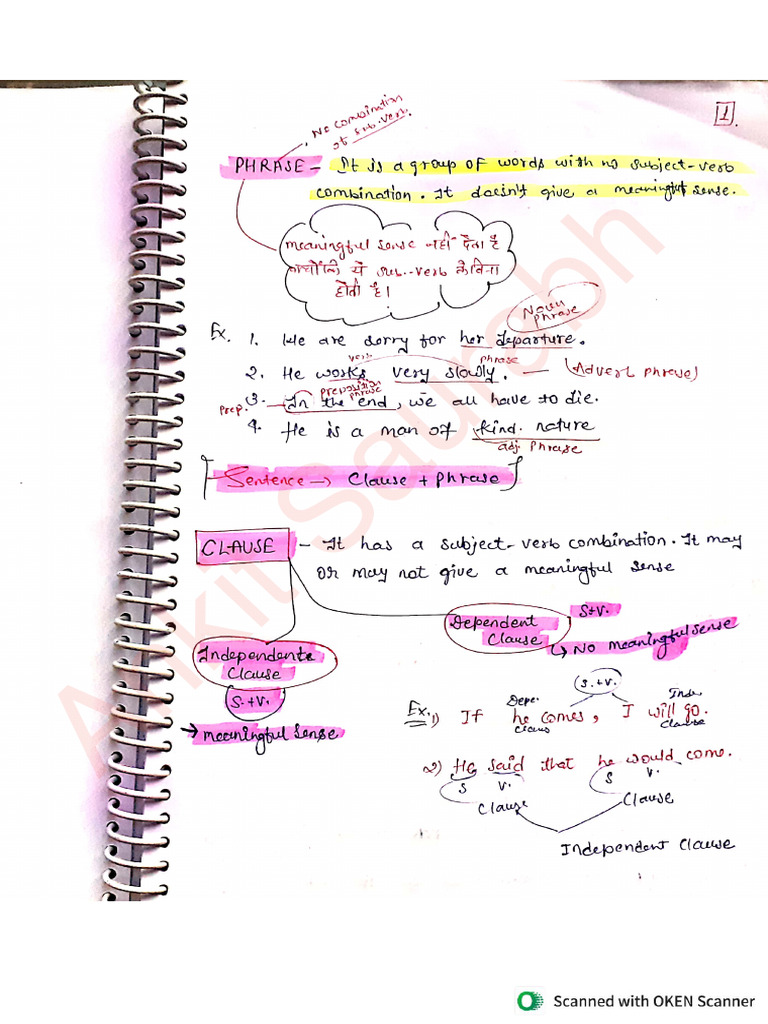 1.
No combination
of sub.verb.
PHRASE - It is a group of words with no subject-verb
combination. It doesn't give a meaningful sense.
meaningful sense नहीं देता है
क्योंकि ये sub.-verb के बिना
होती है।
Noun
phrase
Ex. 1. We are sorry for her departure.
verb phrase
2. He works very slowly. — (Adverb phrase)
preposition
phrase
Prep. 3. In the end, we all have to die.
4. He is a man of kind nature
adj phrase
Sentence → Clause + Phrase
CLAUSE - It has a subject-verb combination. It may
or may not give a meaningful sense
Dependent
Clause
S+V.
↳ No meaningful sense
Independent
Clause
S.+V.
→ meaningful sense
S.+V.
Depe. Inde.
Ex. 1) If he comes, I will go.
Claus Clause
2) He said that he would come.
S V. S V.
Clause Clause
Independent Clause
Ankit Saurabh
Scanned with OKEN Scanner